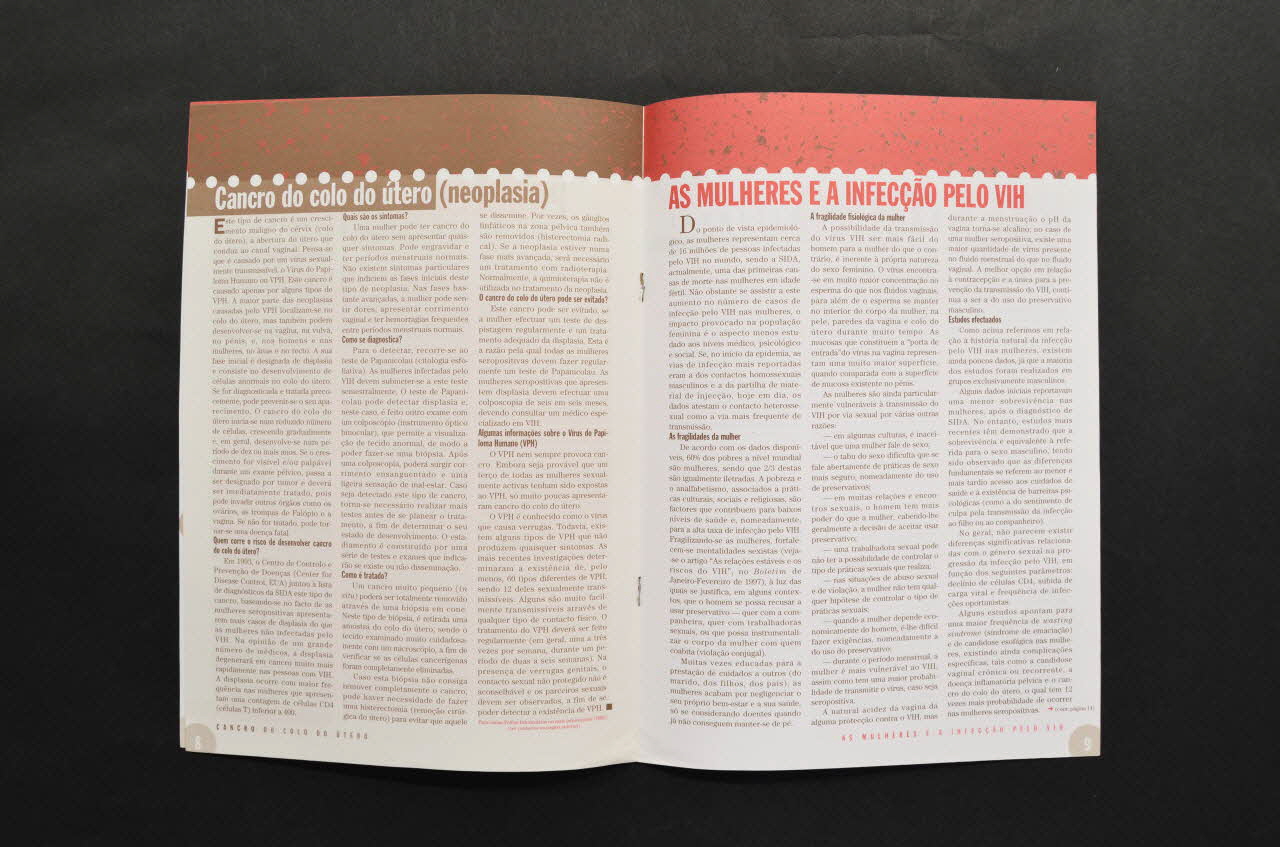 Cancro do colo do útero (neoplasia)
Este tipo de cancro é um cresci-
mento maligno do cérvix (colo
do útero), a abertura do útero que
conduz ao canal vaginal. Pensa-se
que é causado por um vírus sexual-
mente transmissível, o Vírus do Papi-
loma Humano ou VPH. Este cancro é
causado apenas por alguns tipos de
VPH. A maior parte das neoplasias
causadas pelo VPH localizam-se no
colo do útero, mas também podem
desenvolver-se na vagina, na vulva,
no pénis, e, nos homens e nas
mulheres, no ânus e no recto. A sua
fase inicial é designada de displasia
e consiste no desenvolvimento de
células anormais no colo do útero.
Se for diagnosticada e tratada preco-
cemente, pode prevenir-se o seu apa-
recimento. O cancro do colo do
útero inicia-se num reduzido número
de células, crescendo gradualmente
e, em geral, desenvolve-se num pe-
ríodo de dez ou mais anos. Se o cres-
cimento for visível e/ou palpável
durante um exame pélvico, passa a
ser designado por tumor e deverá
ser imediatamente tratado, pois
pode invadir outros órgãos como os
ovários, as trompas de Falópio e a
vagina. Se não for tratado, pode tor-
nar-se uma doença fatal.
Quem corre o risco de desenvolver cancro
do colo do útero?
Em 1993, o Centro de Controlo e
Prevenção de Doenças (Center for
Disease Control, EUA) juntou à lista
de diagnósticos da SIDA este tipo de
cancro, baseando-se no facto de as
mulheres seropositivas apresenta-
rem mais casos de displasia do que
as mulheres não infectadas pelo
VIH. Na opinião de um grande
número de médicos, a displasia
degenerará em cancro muito mais
rapidamente nas pessoas com VIH.
A displasia ocorre com maior fre-
quência nas mulheres que apresen-
tam uma contagem de células CD4
(células T) inferior a 400.
Quais são os sintomas?
Uma mulher pode ter cancro do
colo do útero sem apresentar quais-
quer sintomas. Pode engravidar e
ter períodos menstruais normais.
Não existem sintomas particulares
que indiquem as fases iniciais deste
tipo de neoplasia. Nas fases bas-
tante avançadas, a mulher pode sen-
tir dores, apresentar corrimento
vaginal e ter hemorragias frequentes
entre períodos menstruais normais.
Como se diagnostica?
Para o detectar, recorre-se ao
teste de Papanicolau (citologia esfo-
liativa). As mulheres infectadas pelo
VIH devem submeter-se a este teste
semestralmente. O teste de Papani-
colau pode detectar displasia e,
neste caso, é feito outro exame com
um colposcópio (instrumento óptico
binocular), que permite a visualiza-
ção de tecido anormal, de modo a
poder fazer-se uma biópsia. Após
uma colposcopia, poderá surgir cor-
rimento ensanguentado e uma
ligeira sensação de mal-estar. Caso
seja detectado este tipo de cancro,
torna-se necessário realizar mais
testes antes de se planear o trata-
mento, a fim de determinar o seu
estado de desenvolvimento. O esta-
diamento é constituído por uma
série de testes e exames que indica-
rão se existe ou não disseminação.
Como é tratado?
Um cancro muito pequeno (in
situ) poderá ser totalmente removido
através de uma biópsia em cone.
Neste tipo de biópsia, é retirada uma
amostra do colo do útero, sendo o
tecido examinado muito cuidadosa-
mente com um microscópio, a fim de
verificar se as células cancerígenas
foram completamente eliminadas.
Caso esta biópsia não consiga
remover completamente o cancro,
pode haver necessidade de fazer
uma histerectomia (remoção cirúr-
gica do útero) para evitar que aquele
se dissemine. Por vezes, os gânglios
linfáticos na zona pélvica também
são removidos (histerectomia radi-
cal). Se a neoplasia estiver numa
fase mais avançada, será necessário
um tratamento com radioterapia.
Normalmente, a quimioterapia não é
utilizada no tratamento da neoplasia.
O cancro do colo do útero pode ser evitado?
Este cancro pode ser evitado, se
a mulher efectuar um teste de des-
pistagem regularmente e um trata-
mento adequado da displasia. Esta é
a razão pela qual todas as mulheres
seropositivas devem fazer regular-
mente um teste de Papanicolau. As
mulheres seropositivas que apresen-
tem displasia devem efectuar uma
colposcopia de seis em seis meses,
devendo consultar um médico espe-
cializado em VIH.
Algumas informações sobre o Vírus do Papi-
loma Humano (VPH)
O VPH nem sempre provoca can-
cro. Embora seja provável que um
terço de todas as mulheres sexual-
mente activas tenham sido expostas
ao VPH, só muito poucas apresenta-
ram cancro do colo do útero.
O VPH é conhecido como o vírus
que causa verrugas. Todavia, exis-
tem alguns tipos de VPH que não
produzem quaisquer sintomas. As
mais recentes investigações deter-
minaram a existência de, pelo
menos, 60 tipos diferentes de VPH,
sendo 12 deles sexualmente trans-
missíveis. Alguns são muito facil-
mente transmissíveis através de
qualquer tipo de contacto físico. O
tratamento do VPH deverá ser feito
regularmente (em geral, uma a três
vezes por semana, durante um pe-
ríodo de duas a seis semanas). Na
presença de verrugas genitais, o
contacto sexual não protegido não é
aconselhável e os parceiros sexuais
devem ser observados, a fim de se
poder detectar a existência de VPH.
8
CANCRO DO COLO DO ÚTERO
AS MULHERES E A INFECÇÃO PELO VIH
Do ponto de vista epidemioló-
gico, as mulheres representam cerca
de 16 milhões de pessoas infectadas
pelo VIH no mundo, sendo a SIDA,
actualmente, uma das primeiras cau-
sas de morte nas mulheres em idade
fértil. Não obstante se assistir a este
aumento no número de casos de
infecção pelo VIH nas mulheres, o
impacto provocado na população
feminina é o aspecto menos estu-
dado aos níveis médico, psicológico
e social. Se, no início da epidemia, as
vias de infecção mais reportadas
eram a dos contactos homossexuais
masculinos e a da partilha de mate-
rial de injecção, hoje em dia, os
dados atestam o contacto heterosse-
xual como a via mais frequente de
transmissão.
As fragilidades da mulher
De acordo com os dados disponí-
veis, 60% dos pobres a nível mundial
são mulheres, sendo que 2/3 destas
são igualmente iletradas. A pobreza e
o analfabetismo, associados a práti-
cas culturais, sociais e religiosas, são
factores que contribuem para baixos
níveis de saúde e, nomeadamente,
para a alta taxa de infecção pelo VIH.
Fragilizando-se as mulheres, fortale-
cem-se mentalidades sexistas (veja-
-se o artigo "As relações estáveis e os
riscos do VIH", no Boletim de
Janeiro-Fevereiro de 1997), à luz das
quais se justifica, em alguns contex-
tos, que o homem se possa recusar a
usar preservativo — quer com a com-
panheira, quer com trabalhadoras
sexuais, ou que possa instrumentali-
zar o corpo da mulher com quem
coabita (violação conjugal).
Muitas vezes educadas para a
prestação de cuidados a outros (do
marido, dos filhos, dos pais), as
mulheres acabam por negligenciar o
seu próprio bem-estar e a sua saúde,
só se considerando doentes quando
já não conseguem manter-se de pé.
A fragilidade fisiológica da mulher
A possibilidade da transmissão
do vírus VIH ser mais fácil do
homem para a mulher do que o con-
trário, é inerente à própria natureza
do sexo feminino. O vírus encontra-
-se em muito maior concentração no
esperma do que nos fluidos vaginais,
para além de o esperma se manter
no interior do corpo da mulher, na
pele, paredes da vagina e colo do
útero durante muito tempo. As
mucosas que constituem a "porta de
entrada" do vírus na vagina represen-
tam uma muito maior superfície,
quando comparada com a superfície
de mucosa existente no pénis.
As mulheres são ainda particular-
mente vulneráveis à transmissão do
VIH por via sexual por várias outras
razões:
— em algumas culturas, é inacei-
tável que uma mulher fale de sexo;
— o tabu do sexo dificulta que se
fale abertamente de práticas de sexo
mais seguro, nomeadamente do uso
de preservativos;
— em muitas relações e encon-
tros sexuais, o homem tem mais
poder do que a mulher, cabendo-lhe
geralmente a decisão de aceitar usar
preservativo;
— uma trabalhadora sexual pode
não ter a possibilidade de controlar o
tipo de práticas sexuais que realiza;
— nas situações de abuso sexual
e de violação, a mulher não tem qual-
quer hipótese de controlar o tipo de
práticas sexuais;
— quando a mulher depende eco-
nomicamente do homem, é-lhe difícil
fazer exigências, nomeadamente a
do uso do preservativo;
— durante o período menstrual, a
mulher é mais vulnerável ao VIH,
assim como tem uma maior probabi-
lidade de transmitir o vírus, caso seja
seropositiva.
A natural acidez da vagina dá
alguma protecção contra o VIH, mas
durante a menstruação o pH da
vagina torna-se alcalino; no caso de
uma mulher seropositiva, existe uma
maior quantidade de vírus presente
no fluido menstrual do que no fluido
vaginal. A melhor opção em relação
à contracepção e a única para a pre-
venção da transmissão do VIH, conti-
nua a ser a do uso do preservativo
masculino.
Estudos efectuados
Como acima referimos em rela-
ção à história natural da infecção
pelo VIH nas mulheres, existem
ainda poucos dados, já que a maioria
dos estudos foram realizados em
grupos exclusivamente masculinos.
Alguns dados iniciais reportavam
uma menor sobrevivência nas
mulheres, após o diagnóstico de
SIDA. No entanto, estudos mais
recentes têm demonstrado que a
sobrevivência é equivalente à refe-
rida para o sexo masculino, tendo
sido observado que as diferenças
fundamentais se referem ao menor e
mais tardio acesso aos cuidados de
saúde e à existência de barreiras psi-
cológicas (como a do sentimento de
culpa pela transmissão da infecção
ao filho ou ao companheiro).
No geral, não parecem existir
diferenças significativas relaciona-
das com o género sexual na pro-
gressão da infecção pelo VIH, em
função dos seguintes parâmetros:
declínio de células CD4, subida de
carga viral e frequência de infec-
ções oportunistas.
Alguns estudos apontam para
uma maior frequência de wasting
sindrome (síndrome de emaciação)
e de candidose esofágica nas mulhe-
res, existindo ainda complicações
específicas, tais como a candidose
vaginal crónica ou recorrente, a
doença inflamatória pélvica e o can-
cro do colo do útero, o qual tem 12
vezes mais probabilidade de ocorrer
nas mulheres seropositivas.
(cont. página 14)
AS MULHERES E A INFECÇÃO PELO VIH
9